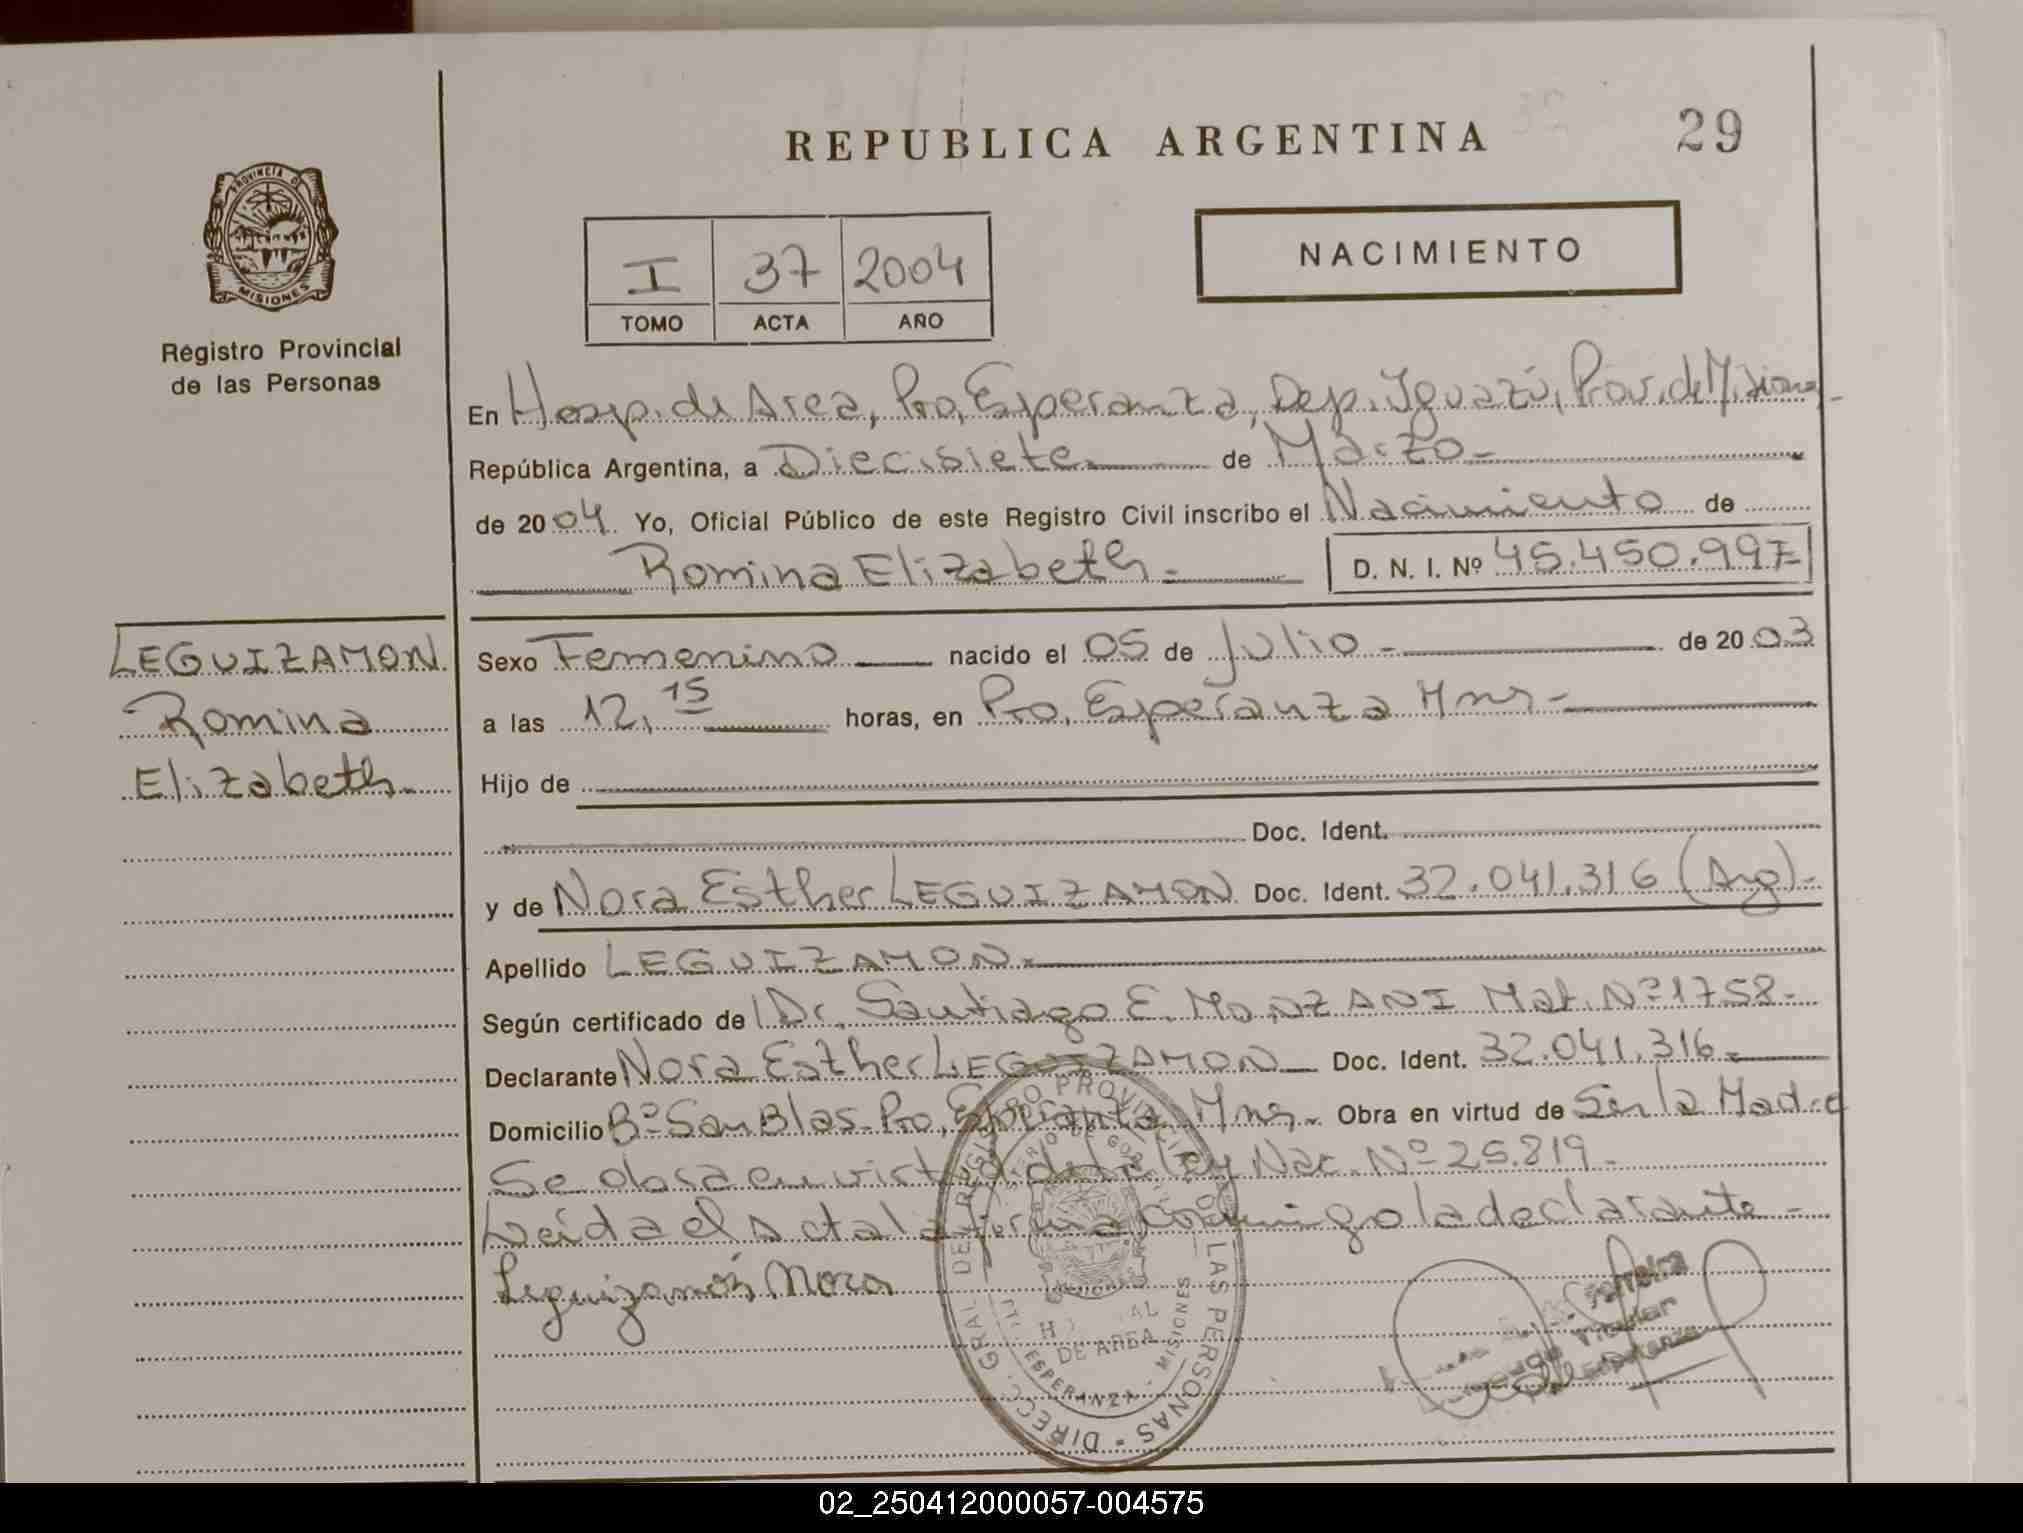 REPUBLICA ARGENTINA
29
PROVINCIA DE
MISIONES
Registro Provincial
de las Personas
I 37 2004
TOMO ACTA AÑO
NACIMIENTO
En Hosp. de Area, Pto. Esperanza, Dep. Iguazú, Prov. de Misiones-
República Argentina, a Diecisiete de Marzo-
de 2004 Yo, Oficial Público de este Registro Civil inscribo el Nacimiento de
Romina Elizabeth.- D. N. I. Nº 45.450.997
LEGUIZAMON
Romina
Elizabeth.
Sexo Femenino nacido el 05 de Julio - de 2003
a las 12,15 horas, en Pto. Esperanza Mnes-
Hijo de
Doc. Ident.
y de Nora Esther LEGUIZAMON Doc. Ident. 32.041.316 (Arg)-
Apellido LEGUIZAMON.-
Según certificado de Dr. Santiago E. MONZANI Mat. Nº 1758-
Declarante Nora Esther LEGUIZAMON Doc. Ident. 32.041.316-
Domicilio Bº San Blas- Pto. Esperanza Mnes- Obra en virtud de Ser la Madre
Se obra en virtud de la Ley Nac. Nº 25.819-
Leída el Acta la firma conmigo la declarante-
Leguizamón Nora
DIRECC. GRAL. DE REGISTRO PROVINCIAL DE LAS PERSONAS
DE AREA
ESPERANZA - MISIONES
Ferreira
Titular
Esperanza
02_250412000057-004575